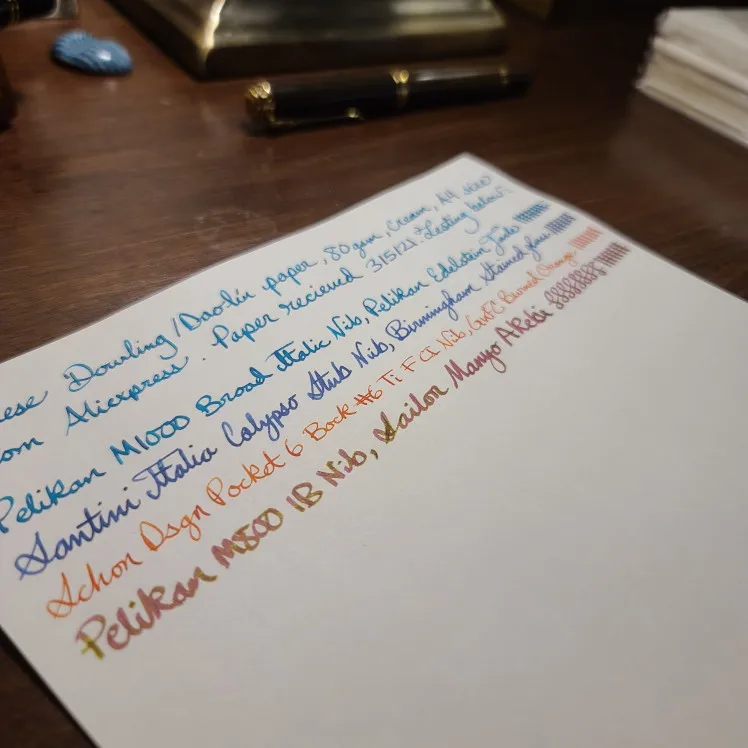 ese Dowling/Daolin paper, 80gsm, Cream, A4 size
om Aliexpress. Paper recieved 3/5/21. Testing below:
Pelikan M1000 Broad Italic Nib, Pelikan Edelstein Jade
Santini Italia Calypso Stub Nib, Birmingham Stained glass
Schon Dsgn Pocket 6 Bock #6 Ti F CI Nib, GvFC Burned Orange
Pelikan M800 IB Nib, Sailor Manyo AKebi